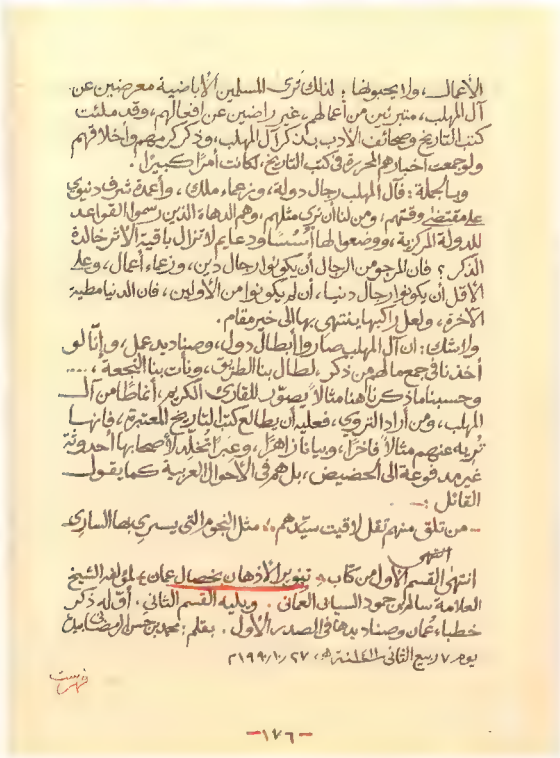 الأعمال ، ولا يحبونها ؛ لذلك ترى المسلمين الأباضية معرضين عن
آل المهلب ، متبرئين من أعمالهم ، غير راضين عن افعالهم ، وقد ملئت
كتب التاريخ وصحائف الأدب بذكر آل المهلب ، وذكر كرمهم واخلاقهم
ولو جمعت أخبارهم المحررة فى كتب التاريخ ، لكانت أمرًا كبيرًا .
وبالجملة : فآل المهلب رجال دولة ، وزعماء ملك ، وأعمدة شرف دنيوي
على مقتضى وقتهم ، ومن لنا أن نرى مثلهم ، وهم الدهاة الذين رسموا القواعد
للدولة المركزية ، ووضعوا لها أُسُسًا ودعايم لا تزال باقية الأثر خالدة
الذكر ؟ فان المرجو من الرجال أن يكونوا رجال دين ، وزعماء أعمال ، وعلى
الاقل أن يكونوا رجال دنيا ، أن لم يكونوا من الأولين ، فان الدنيا مطية
الآخرة ، ولعل راكبها ينتهى بها الى خير مقام .
ولا شك : ان آل المهلب صاروا أبطال دول ، وصناديد عمل ، وإنّا لو
أخذنا فى جمع ما لهم من ذكر ، لطال بنا الطريق ، ونأت بنا النجعة ، ....
وحسبنا ما ذكرناه هنا مثالاً يصوّر للقارئ الكريم ، أنماطًا من آل
المهلب ، ومن أراد التروي ، فعليه أن يطالع كتب التاريخ المعتبرة ، فانها
تُريه عنهم مثالاً فاخرًا ، وبيانا زاهرًا ، وعبرًا تخلد لأصحابها أحدوثة
غير مدفوعة الى الحضيض ، بل هم فى الأحوال العربية كما يقول
القائل : -
- من تلق منهم تقل لاقيت سيّدهم ،، مثل النجوم التى يسري بها السارى
انتهى
انتهى القسم الأول من كتاب « تنوير الأذهان بخصال عمان » لمؤلفه الشيخ
العلامة سالم بن حمود السيابى العمانى . ويليه القسم الثانى . أوّله ذكر
خطباء عُمان وصناديدها فى الصدر الأول . بقلم : محمد بن حسن الرمضانى
يوم ٧ ربيع الثانى ١٤١١ لسنة هـ ، ٢٧ / ١٠ / ١٩٩٠ م
فهرست
-١٧٦-